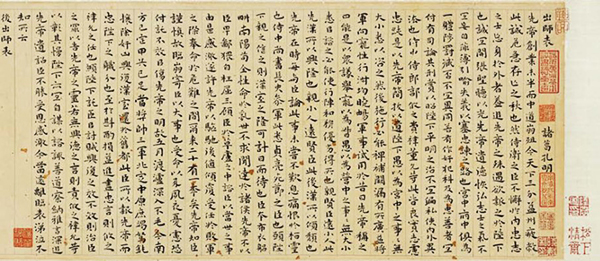 出師表 諸葛孔明
先帝創業未半而中道崩殂今天下三分益州疲敝
此誠危急存亡之秋也然侍衛之臣不懈於內忠志
之士忘身於外者蓋追先帝之殊遇欲報之於陛下
也誠宜開張聖聽以光先帝遺德恢弘志士之氣不
宜妄自菲薄引喻失義以塞忠諫之路也宮中府中俱為一體
陟罰臧否不宜異同若有作奸犯科及為忠善者宜
付有司論其刑賞以昭陛下平明之治不宜偏私使內外異
法也侍中侍郎郭攸之費禕董允等此皆良實志慮
忠純是以先帝簡拔以遺陛下愚以為宮中之事事無
大小悉以咨之然後施行必能裨補闕漏有所廣益將
軍向寵性行淑均曉暢軍事試用於昔日先帝稱
之曰能是以眾議舉寵為督愚以為營中之事事無大小
悉以咨之必能使行陣和穆優劣得所也親賢臣遠小人此
先漢所以興隆也親小人遠賢臣此後漢所以傾頹也
先帝在時每與臣論此事未嘗不歎息痛恨於桓靈
也侍中尚書長史參軍此悉貞亮死節之臣也願陛
下親之信之則漢室之隆可計日而待也臣本布衣躬
耕南陽苟全性命於亂世不求聞達於諸侯先帝不以
臣卑鄙猥自枉屈三顧臣於草廬之中諮臣以當世之事
由是感激遂許先帝以驅馳後值傾覆受任於敗軍
之際奉命於危難之間爾來二十有一年矣先帝知臣
謹慎故臨崩寄臣以大事也受命以來夙夜憂慮恐
付託不效以傷先帝之明故五月渡瀘深入不毛今南
方已定甲兵已足當獎帥三軍北定中原庶竭駑鈍
攘除奸凶興復漢室還於舊都此臣所以報先帝而
忠陛下之職分也至於斟酌損益進盡忠言則攸之
禕允之任也願陛下託臣以討賊興復之效不效則治臣
之罪以告先帝之靈若無興德之言則責攸之禕允等
咎以彰其慢陛下亦宜自謀以諮諏善道察納雅言深追
先帝遺詔臣不勝受恩感激今當遠離臨表涕泣不
知所云
後出師表